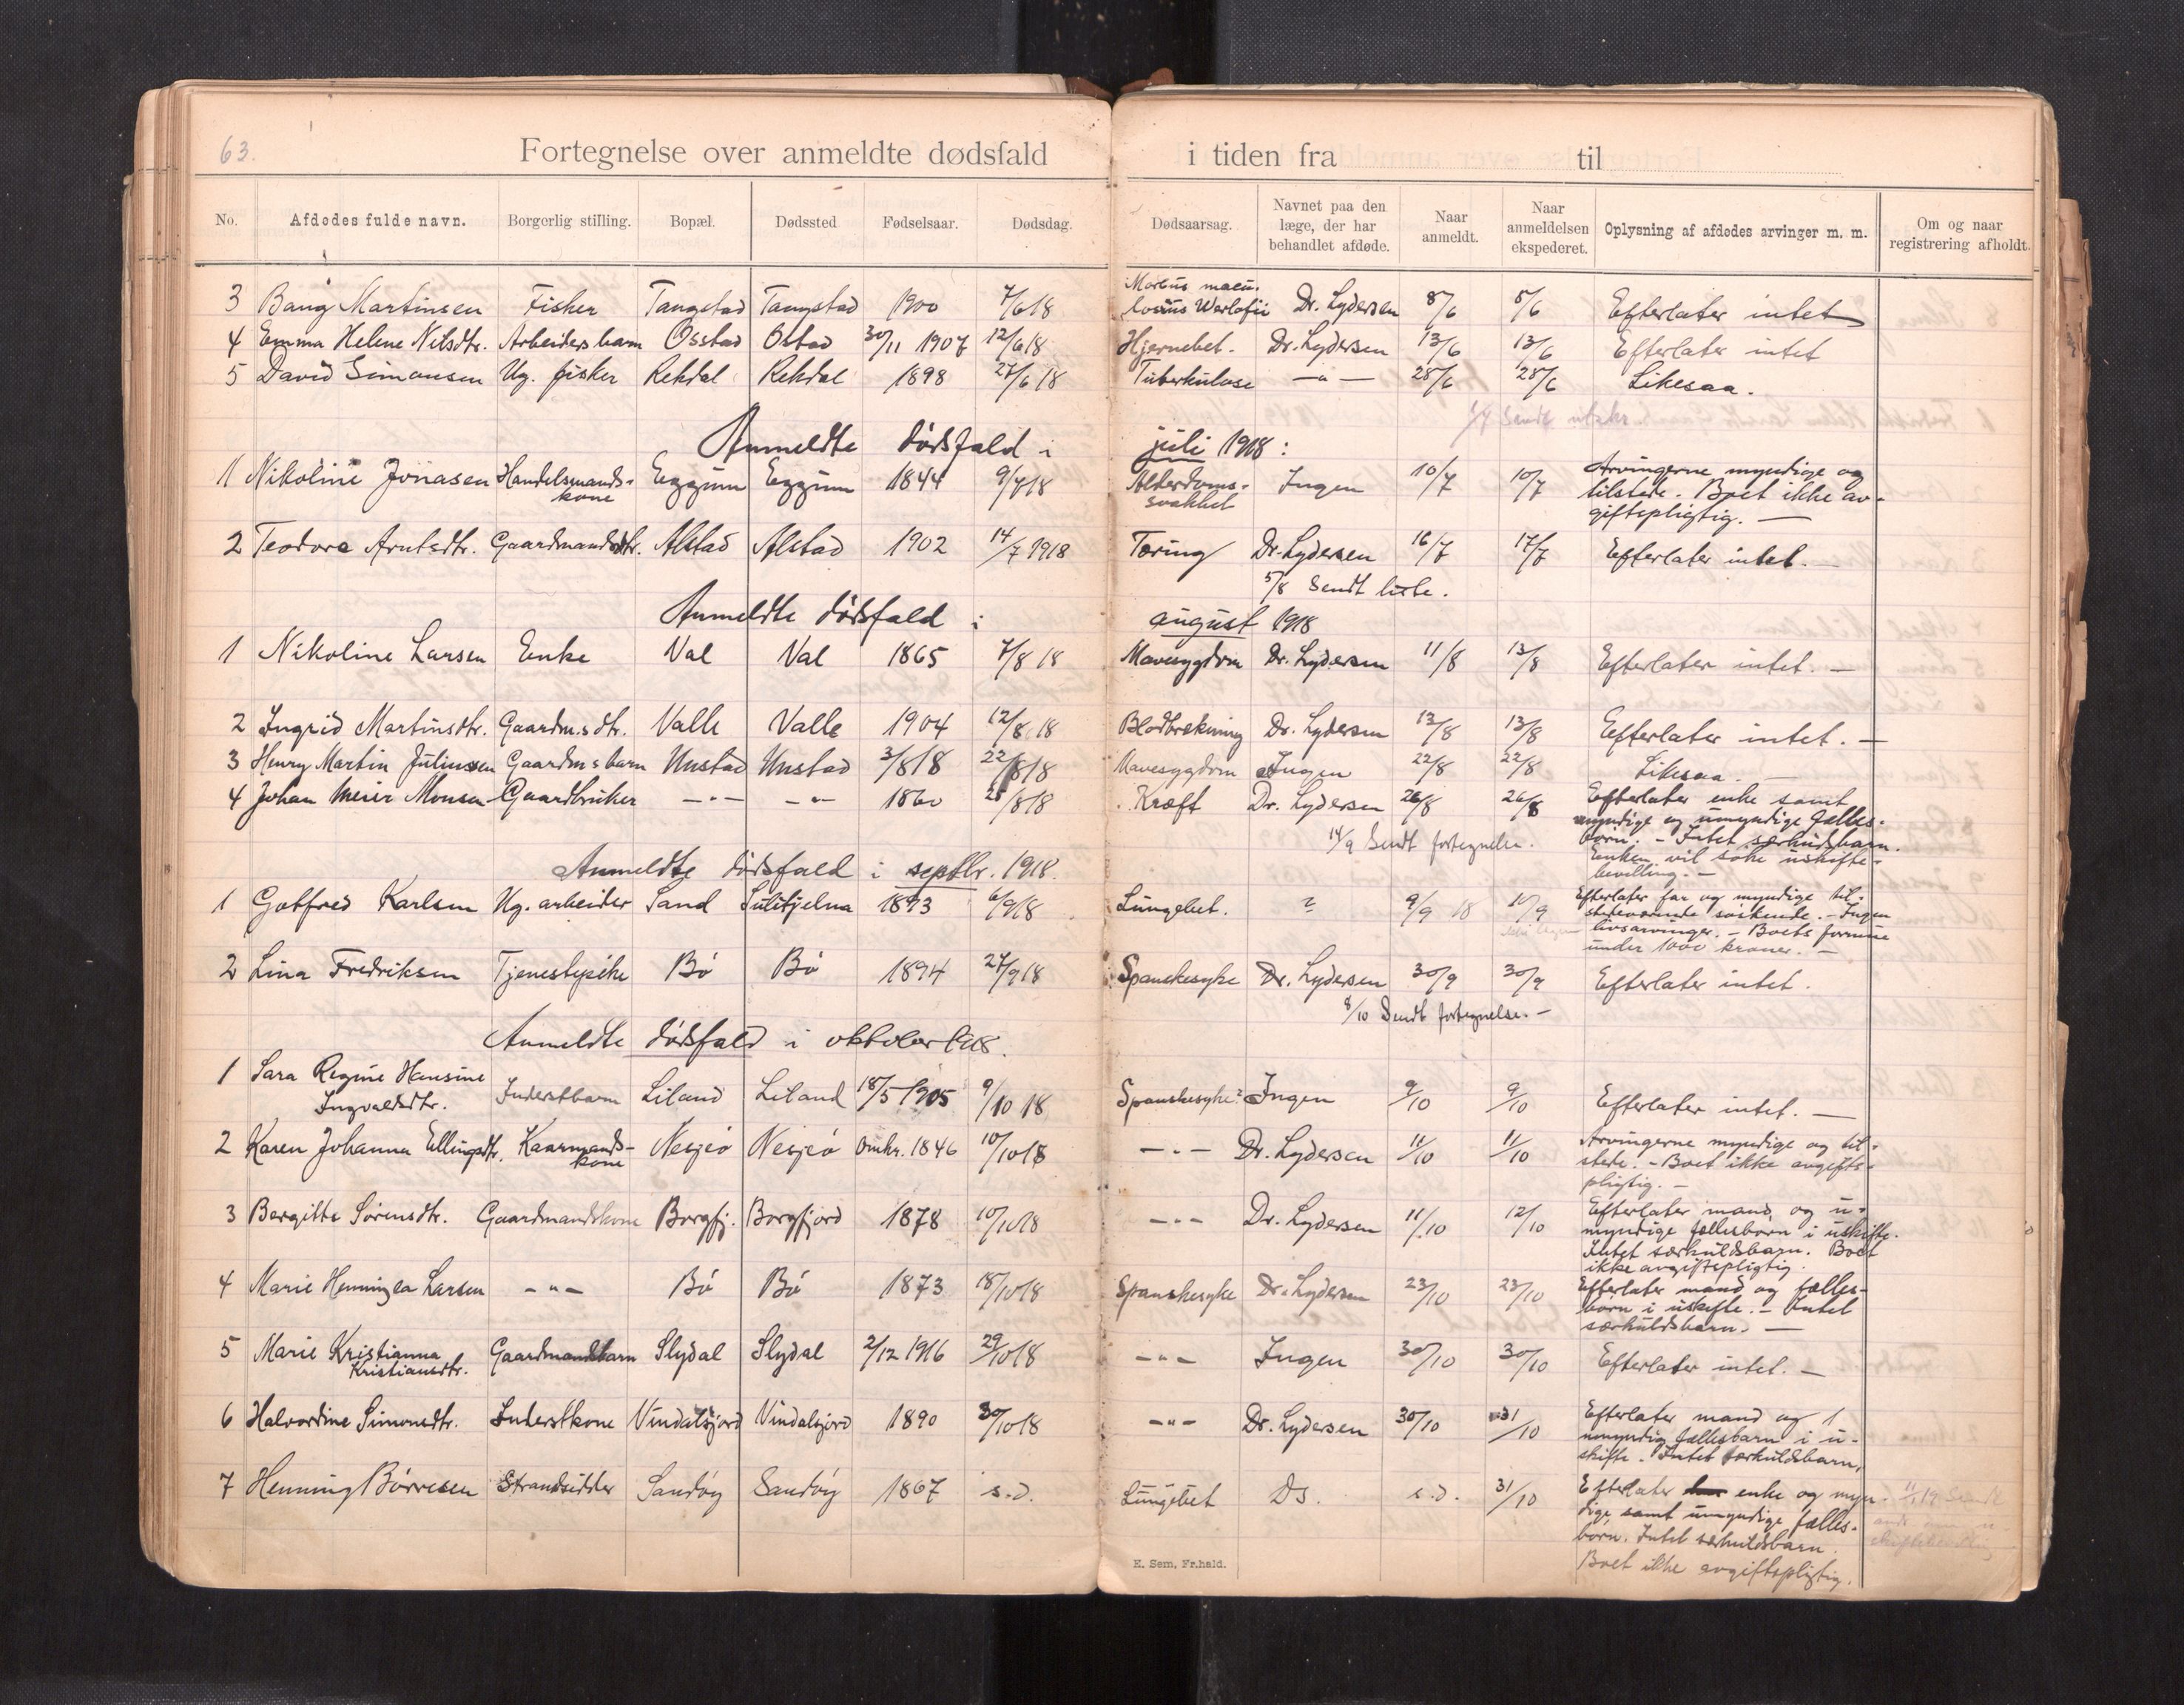 63.
Fortegnelse over anmeldte dødsfald i tiden fra til
No. Afdødes fulde navn. Borgerlig stilling. Bopæl. Dødssted Fødselsaar. Dødsdag. Dødsaarsag. Navnet paa den læge, der har behandlet afdøde. Naar anmeldt. Naar anmeldelsen ekspederet. Oplysning af afdødes arvinger m. m. Om og naar registrering afholdt.
3 Bang Martinsen Fisker Tangstad Tangstad 1900 7/6 18 Morbus macu- losus Werlofii Dr. Lydersen 8/6 8/6 Efterlater intet
4 Emma Helene Nilsdtr. Arbeidersbarn Osstad Ostad 30/11 1907 12/6 18 Hjernebet. Dr. Lydersen 13/6 13/6 Efterlater intet
5 David Simonsen Ug. fisker Rekdal Rekdal 1898 27/6 18 Tuberkulose —"— 28/6 28/6 Likesaa.
1/7 Sendt utskr.
Anmeldte dødsfald i juli 1918:
1 Nikoline Jonasen Handelsmands- kone Eggum Eggum 1844 9/7 18 Alderdoms- svakhet Ingen 10/7 10/7 Arvingerne myndige og
tilstede. Boet ikke av-
giftspligtig. —
2 Teodora Arntsdtr. Gaardmandsdtr. Alstad Alstad 1902 14/7 1918 Tæring Dr. Lydersen 16/7 17/7 Efterlater intet. —
5/8 Sendt liste.
Anmeldte dødsfald i august 1918
1 Nikoline Larsen Enke Val Val 1865 7/8 18 Mavesygdom Dr. Lydersen 11/8 13/8 Efterlater intet. —
2 Ingrid Martinsdtr. Gaardm.s dtr. Valle Valle 1904 12/8 18 Blodbrækning Dr. Lydersen 13/8 13/8 Efterlater intet. —
3 Henry Martin Juliussen Gaardm s barn Unstad Unstad 3/8 18 22/8 18 Mavesygdom Ingen 22/8 22/8 Likesaa. —
4 Johan Meier Monsen Gaardbruker —"— —"— 1860 /8 18 Kræft Dr. Lydersen 26/8 26/8 Efterlater enke samt
myndige og umyndige fælles-
børn. - Intet særkuldsbarn.
Enken vil søke uskifte-
bevilling. —
14/9 Sendt fortegnelse.
Anmeldte dødsfald i septbr. 1918.
1 Gotfred Karlsen Ug. arbeider Sand Sulitjelma 1893 6/9 18 Lungebet. ? 9/9 18 10/9 Efterlater far og myndige til-
stedeværende søskende. - Ingen
livsarvinger. - Boets formue
under 1000 kroner. —
2 Lina Fredriksen Tjenestepike Bø Bø 1894 27/9 18 Spanskesyke Dr. Lydersen 30/9 30/9 Efterlater intet.
8/10 Sendt fortegnelse. —
Anmeldte dødsfald i oktober 1918.
1 Sara Regine Hansine Ingvaldsdtr. Inderstbarn Liland Liland 18/5 1905 9/10 18 Spanskesyke? Ingen 9/10 9/10 Efterlater intet. —
2 Karen Johanna Ellingsdtr. Kaarmands- kone Nesjeø Nesjeø Omkr. 1846 10/10 18 —"— Dr. Lydersen 11/10 11/10 Arvingerne myndige og til-
stede. - Boet ikke avgifts-
pligtig. —
3 Bergitte Sørensdtr. Gaardmandskone Borgfj. Borgfjord 1878 10/10 18 —"— Dr. Lydersen 11/10 12/10 Efterlater mand og u-
myndige fællesbørn i uskifte.
Intet særkuldsbarn. Boet
ikke avgiftspligtig.
4 Marie Henningea Larsen —"— Bø Bø 1873 18/10 18 Spanskesyke Dr. Lydersen 23/10 23/10 Efterlater mand og fælles-
børn i uskifte. - Intet
særkuldsbarn. —
5 Marie Kristianna Kristiansdtr. Gaardmandsbarn Slydal Slydal 2/12 1916 29/10 18 —"— Ingen 30/10 30/10 Efterlater intet. —
6 Halvordine Simonsdtr. Inderstkone Vindalsfjord Vindalsfjord 1890 30/10 18 —"— Dr. Lydersen 30/10 31/10 Efterlater mand og 1
umyndig fællesbarn i u-
skifte. Intet særkuldsbarn.
7 Henning Børresen Strandsidder Sandøy Sandøy 1867 s.d. Lungebet Ds. s.d. 31/10 Efterlater enke og myn-
dige samt umyndige fælles-
børn. Intet særkuldsbarn.
Boet ikke avgiftspligtig.
11/1 19 Sendt
E. Sem, Fr.hald.